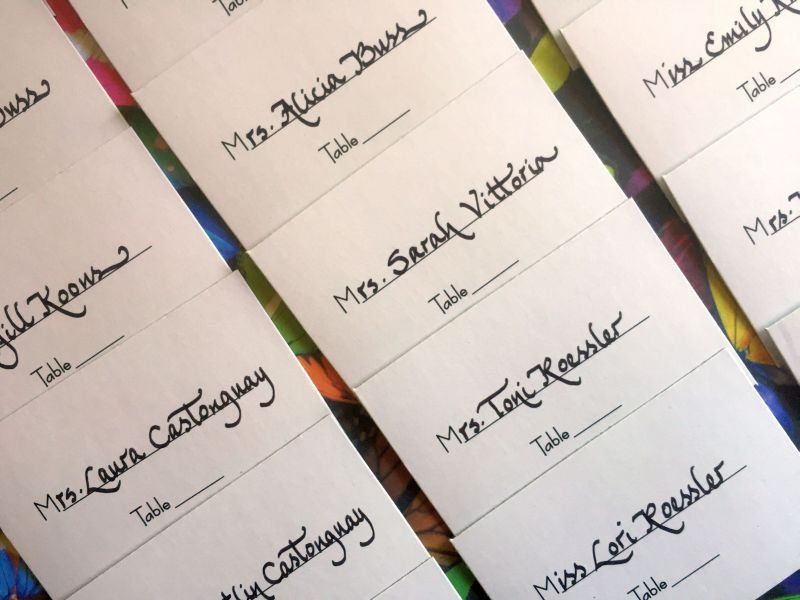 Table
Buss
Mrs. Alicia Buss
Table
Miss Emily
Table
Mrs. Sarah Vittoria
Table
Mrs.
Jill Koons
Table
Mrs. Toni Roessler
Table
Mrs. Laura Castonguay
Table
Miss Lori Roessler
Table
Castonguay